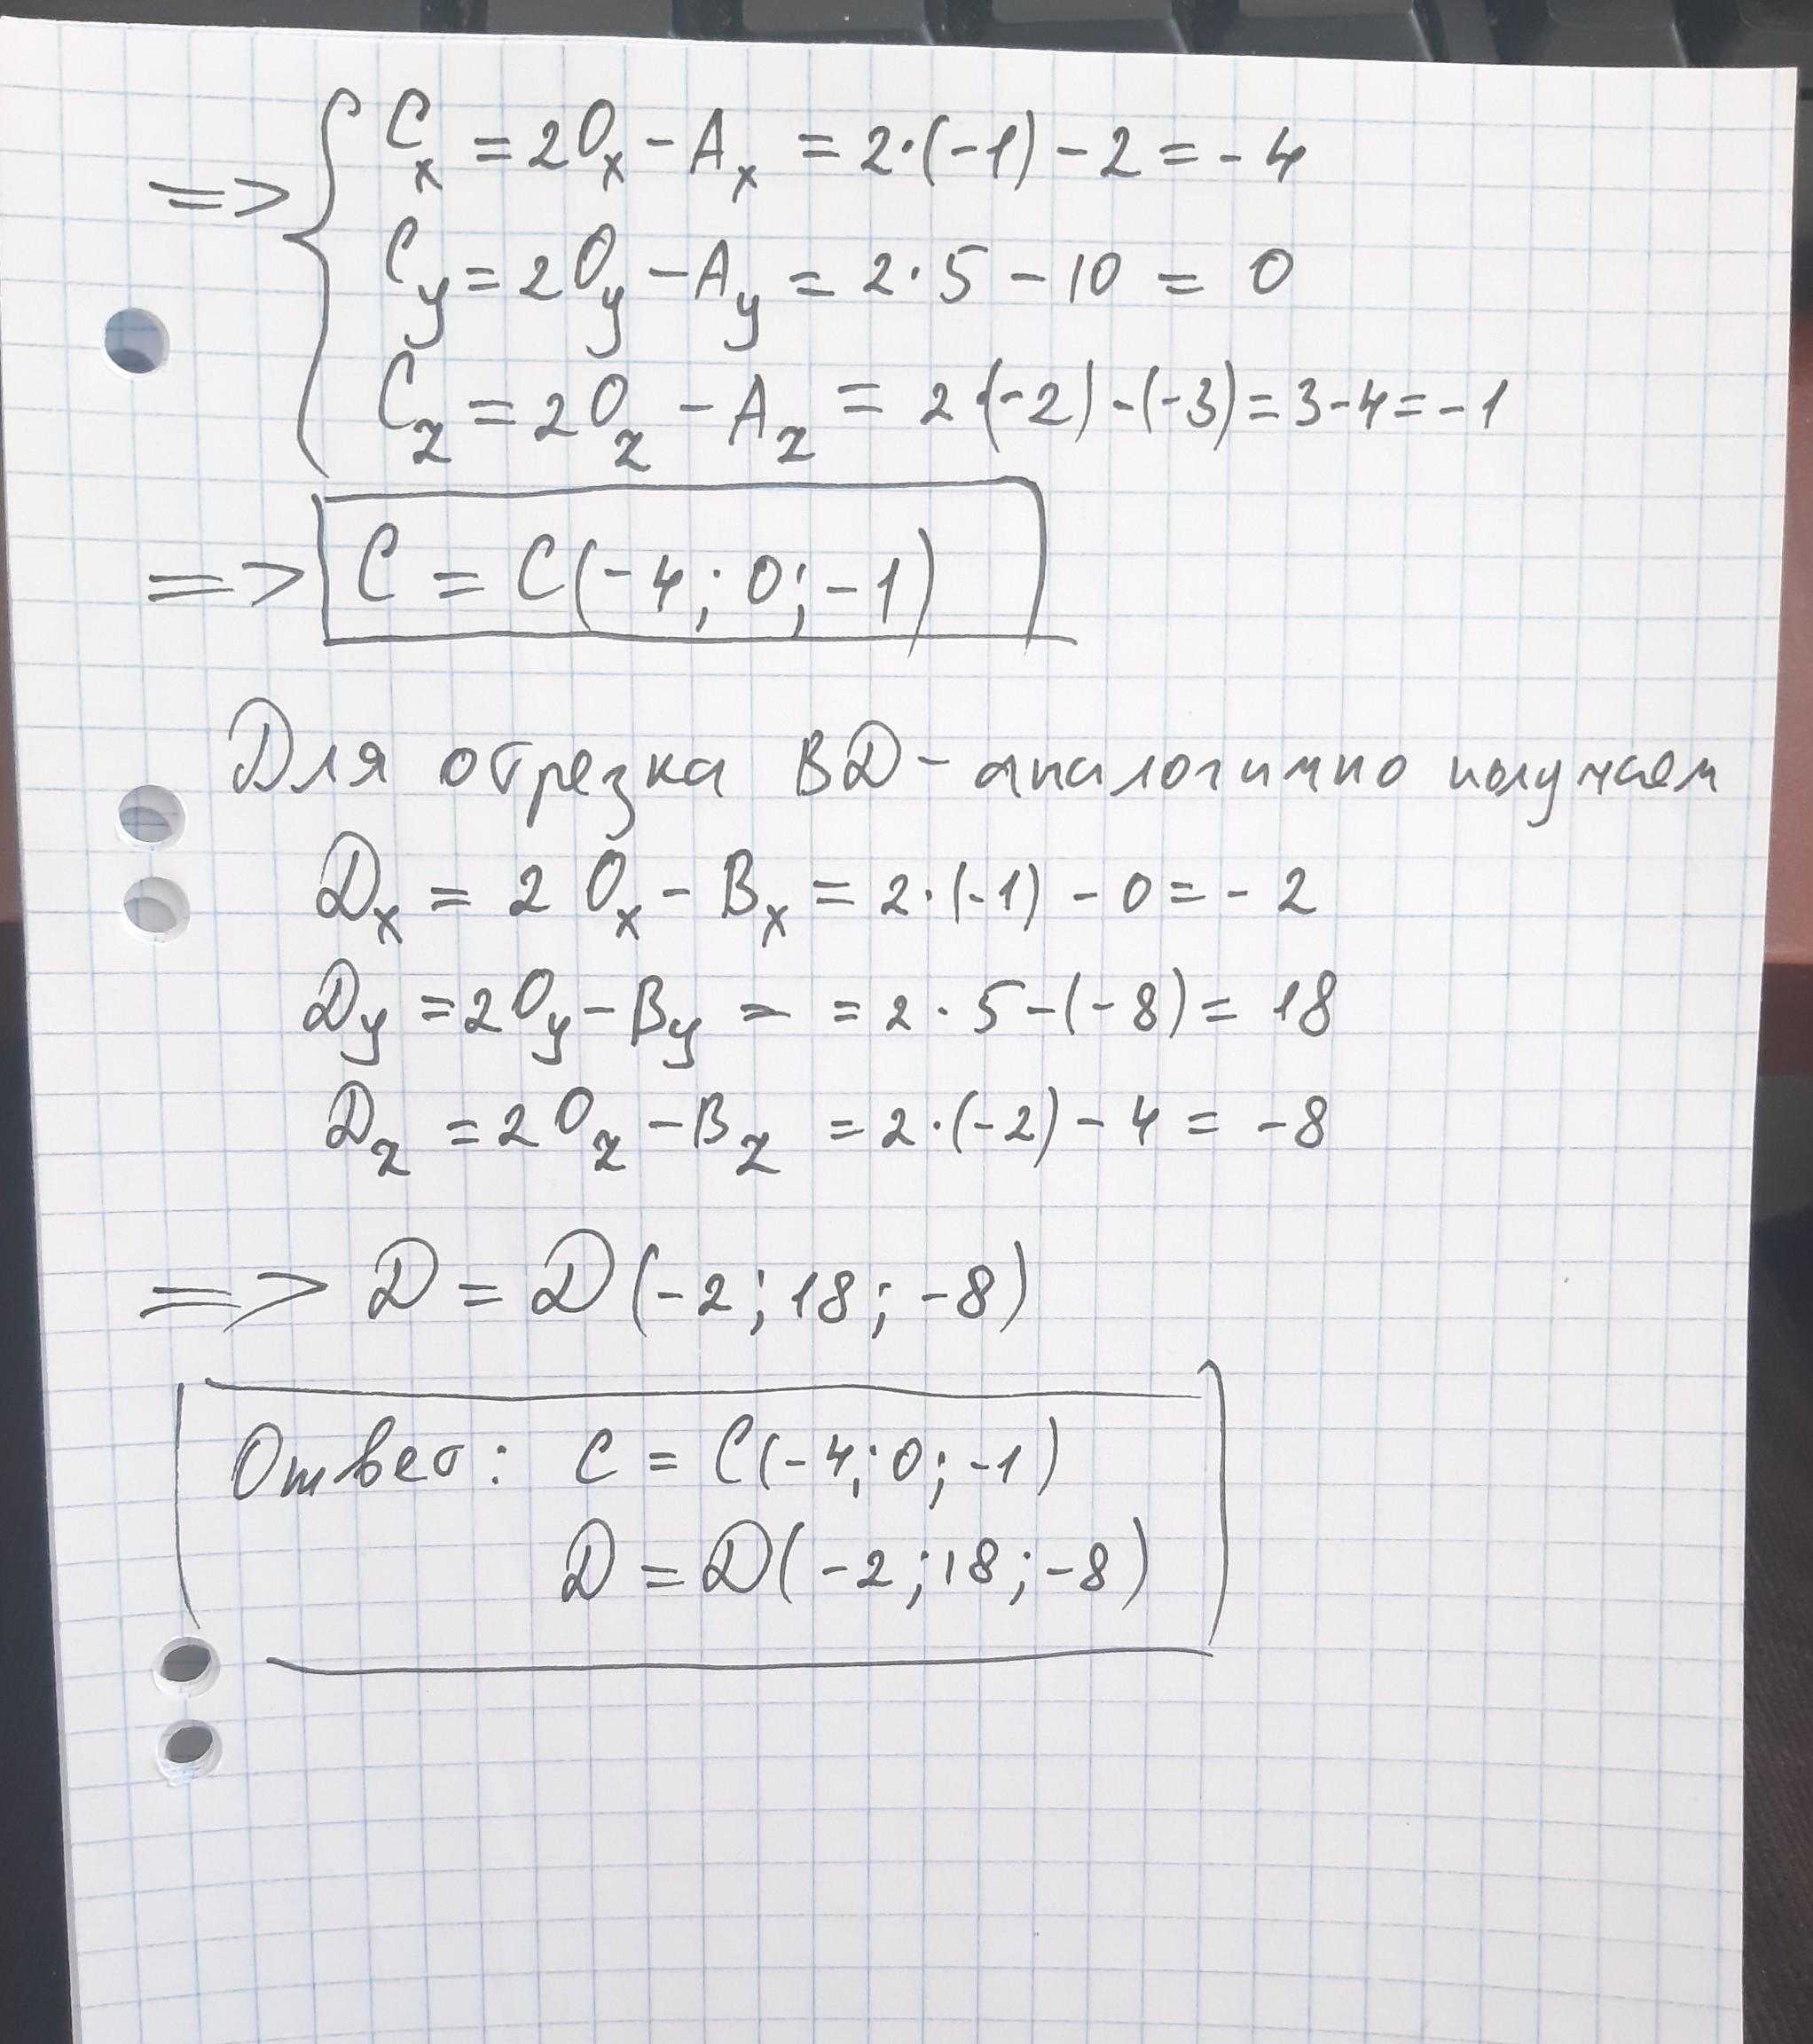 => { Cx = 2Ox - Ax = 2·(-1) - 2 = - 4
Cy = 2Oy - Ay = 2·5 - 10 = 0
Cz = 2Oz - Az = 2·(-2) - (-3) = 3-4 = -1
=> C = C(-4; 0; -1)
Для отрезка BD - аналогично получаем
Dx = 2 Ox - Bx = 2·(-1) - 0 = - 2
Dy = 2Oy - By = = 2·5-(-8) = 18
Dz = 2Oz - Bz = 2·(-2) - 4 = -8
=> D = D (-2; 18; -8)
Ответ: C = C(-4; 0; -1)
D = D(-2; 18; -8)